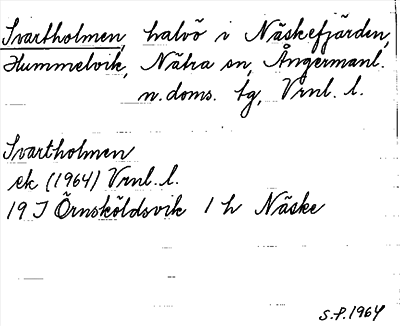 Svartholmen, halvö i Näskefjärden,
Hummelvik, Nätra sn, Ångermanl.
n.doms. tg, Vrnl. l.
Svartholmen
ek (1964) Vrnl. l.
19 J Örnsköldsvik 1 h Näske
S.P. 1964